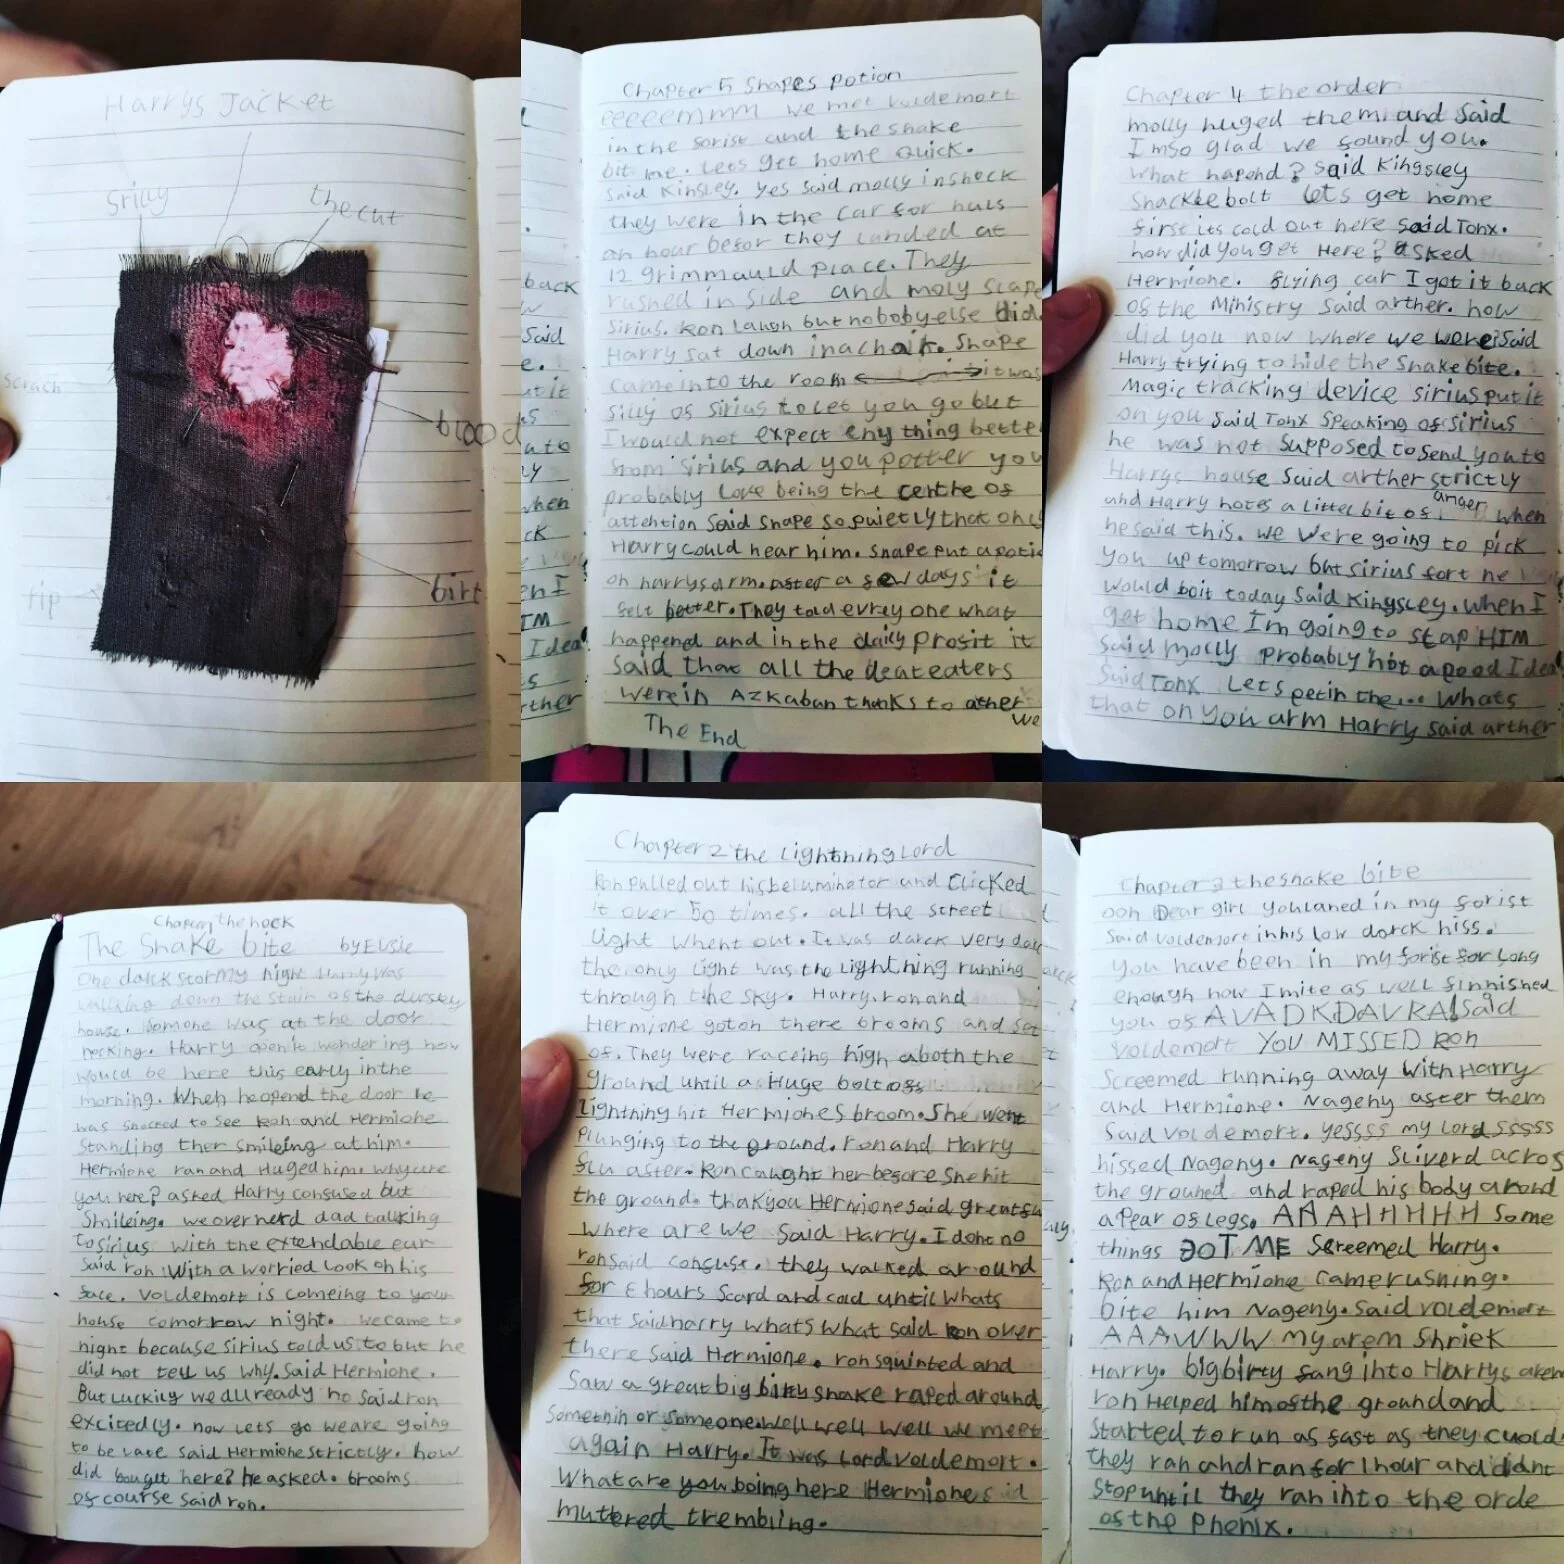 Harrys Jacket
the cut
scrach
blood
birt
Chapter 5 Shapes Potion
eeeeemmm we met voldemort
in the forist and the snake
bit me. Lets get home quick.
Said Kinsley. yes said molly in shock
they were in the car for halfs
an hour befor they landed at
12 grimmauld place. They
rushed in side and moly slape
Sirius. Ron laugh but nobobyelse did.
Harry sat down in a chair. Snape
Came into the room it was
silly of Sirius to let you go but
I would not expect eny thing bette
from sirius and you potter you
probably love being the centre of
attention Said Snape so quietly that only
Harry could hear him. Snape put a potio
on harrys arm. after a few days it
felt better. They told evrey one what
happend and in the daily profit it
said that all the deateaters
were in Azkaban thanks to
We
The End
Chapter 4 the order
molly huged them and said
I mso glad we found you.
What hapend? said Kingsley
Shackle bolt lets get home
first its cold out here said Tonx.
how did you get Here? asked
Hermione. flying car I got it back
of the Ministry said arther. how
did you now where we were said
Harry trying to hide the Snake bite.
Magic tracking device sirius put it
on you said Tonx Speaking of sirius
he was not supposed to send you to
Harrys house said arther strictly
and Harry notes a littel bit of anger when
he said this. we were going to pick
you up tomorrow but sirius fort he
would boit today said Kingsley. when I
get home Im going to slap HIM
said molly probably not a good Idea!
said Tonx Lets get in the... whats
that on you arm Harry said arther
Chapter 1 the nock
The Snake bite by Elsie
One darck stormy night Harry was
walking down the stair of the dursley
house. Somone was at the door
necking. Harry open it wondering how
would be here this early in the
morning. When he opend the door he
was shocked to see Ron and Hermione
Standing ther smileing at him.
Hermione ran and Huged him. why are
you here? asked Harry confused but
Smileing. we over herd dad tallking
to sirius with the extendable ear
said ron with a worried look on his
face. Voldemort is comeing to your
house tomorrow night. we came to
night because sirius told us to but he
did not tell us why. said Hermione.
But Luckily we allready no said ron
excitedly. now lets go we are going
to be late said Hermione strictly. how
did you get here? he asked. brooms
of course said ron.
Chapter 2 the Lightning Lord
Ron pulled out his beluminator and Clicked
it over 50 times. all the street
light whent out. It was darck very darck
the only light was the lightning running
through the sky. Harry, ron and
Hermione got on there brooms and set
of. They were raceing high aboth the
ground until a Huge bolt of
lightning hit Hermiones broom. She went
Plunging to the ground. ron and Harry
flu after. Ron caught her before She hit
the ground. thakyou Hermione said greatfu
where are we said Harry. I dont no
ron said confusd. they walked around
for 6 hours scard and cold until whats
that said harry whats what said Ron over
there said Hermione. ron squinted and
saw a great big birty snake raped around
somethin or someone. well well well we meet
again Harry. It was Lord voldemort.
What are you boing here Hermione
muttered trembling.
Chapter 3 the snake bite
ooh Dear girl you laned in my forist
said voldemort in his low dorck hiss.
You have been in my forist for long
enough now I mite as well finnished
you of AVADKDAVRA! said
voldemort YOU MISSED Ron
Screemed running away with Harry
and Hermione. Nageny after them
said voldemort. yessss my lord sssss
hissed Nageny. Nageny sliverd acros
the grouned and raped his body arond
a pear of legs. AAAHHHHH some
things GOT ME Screemed Harry.
Ron and Hermione came rushing.
bite him Nageny. said voldemort
AAAWWW my arem Shriek
Harry. big birty fang into Harrys arem
ron Helped him of the ground and
Started to run as fast as they cuold.
they ran and ran for 1 hour and didnt
Stop until they ran into the orde
of the Phenix.